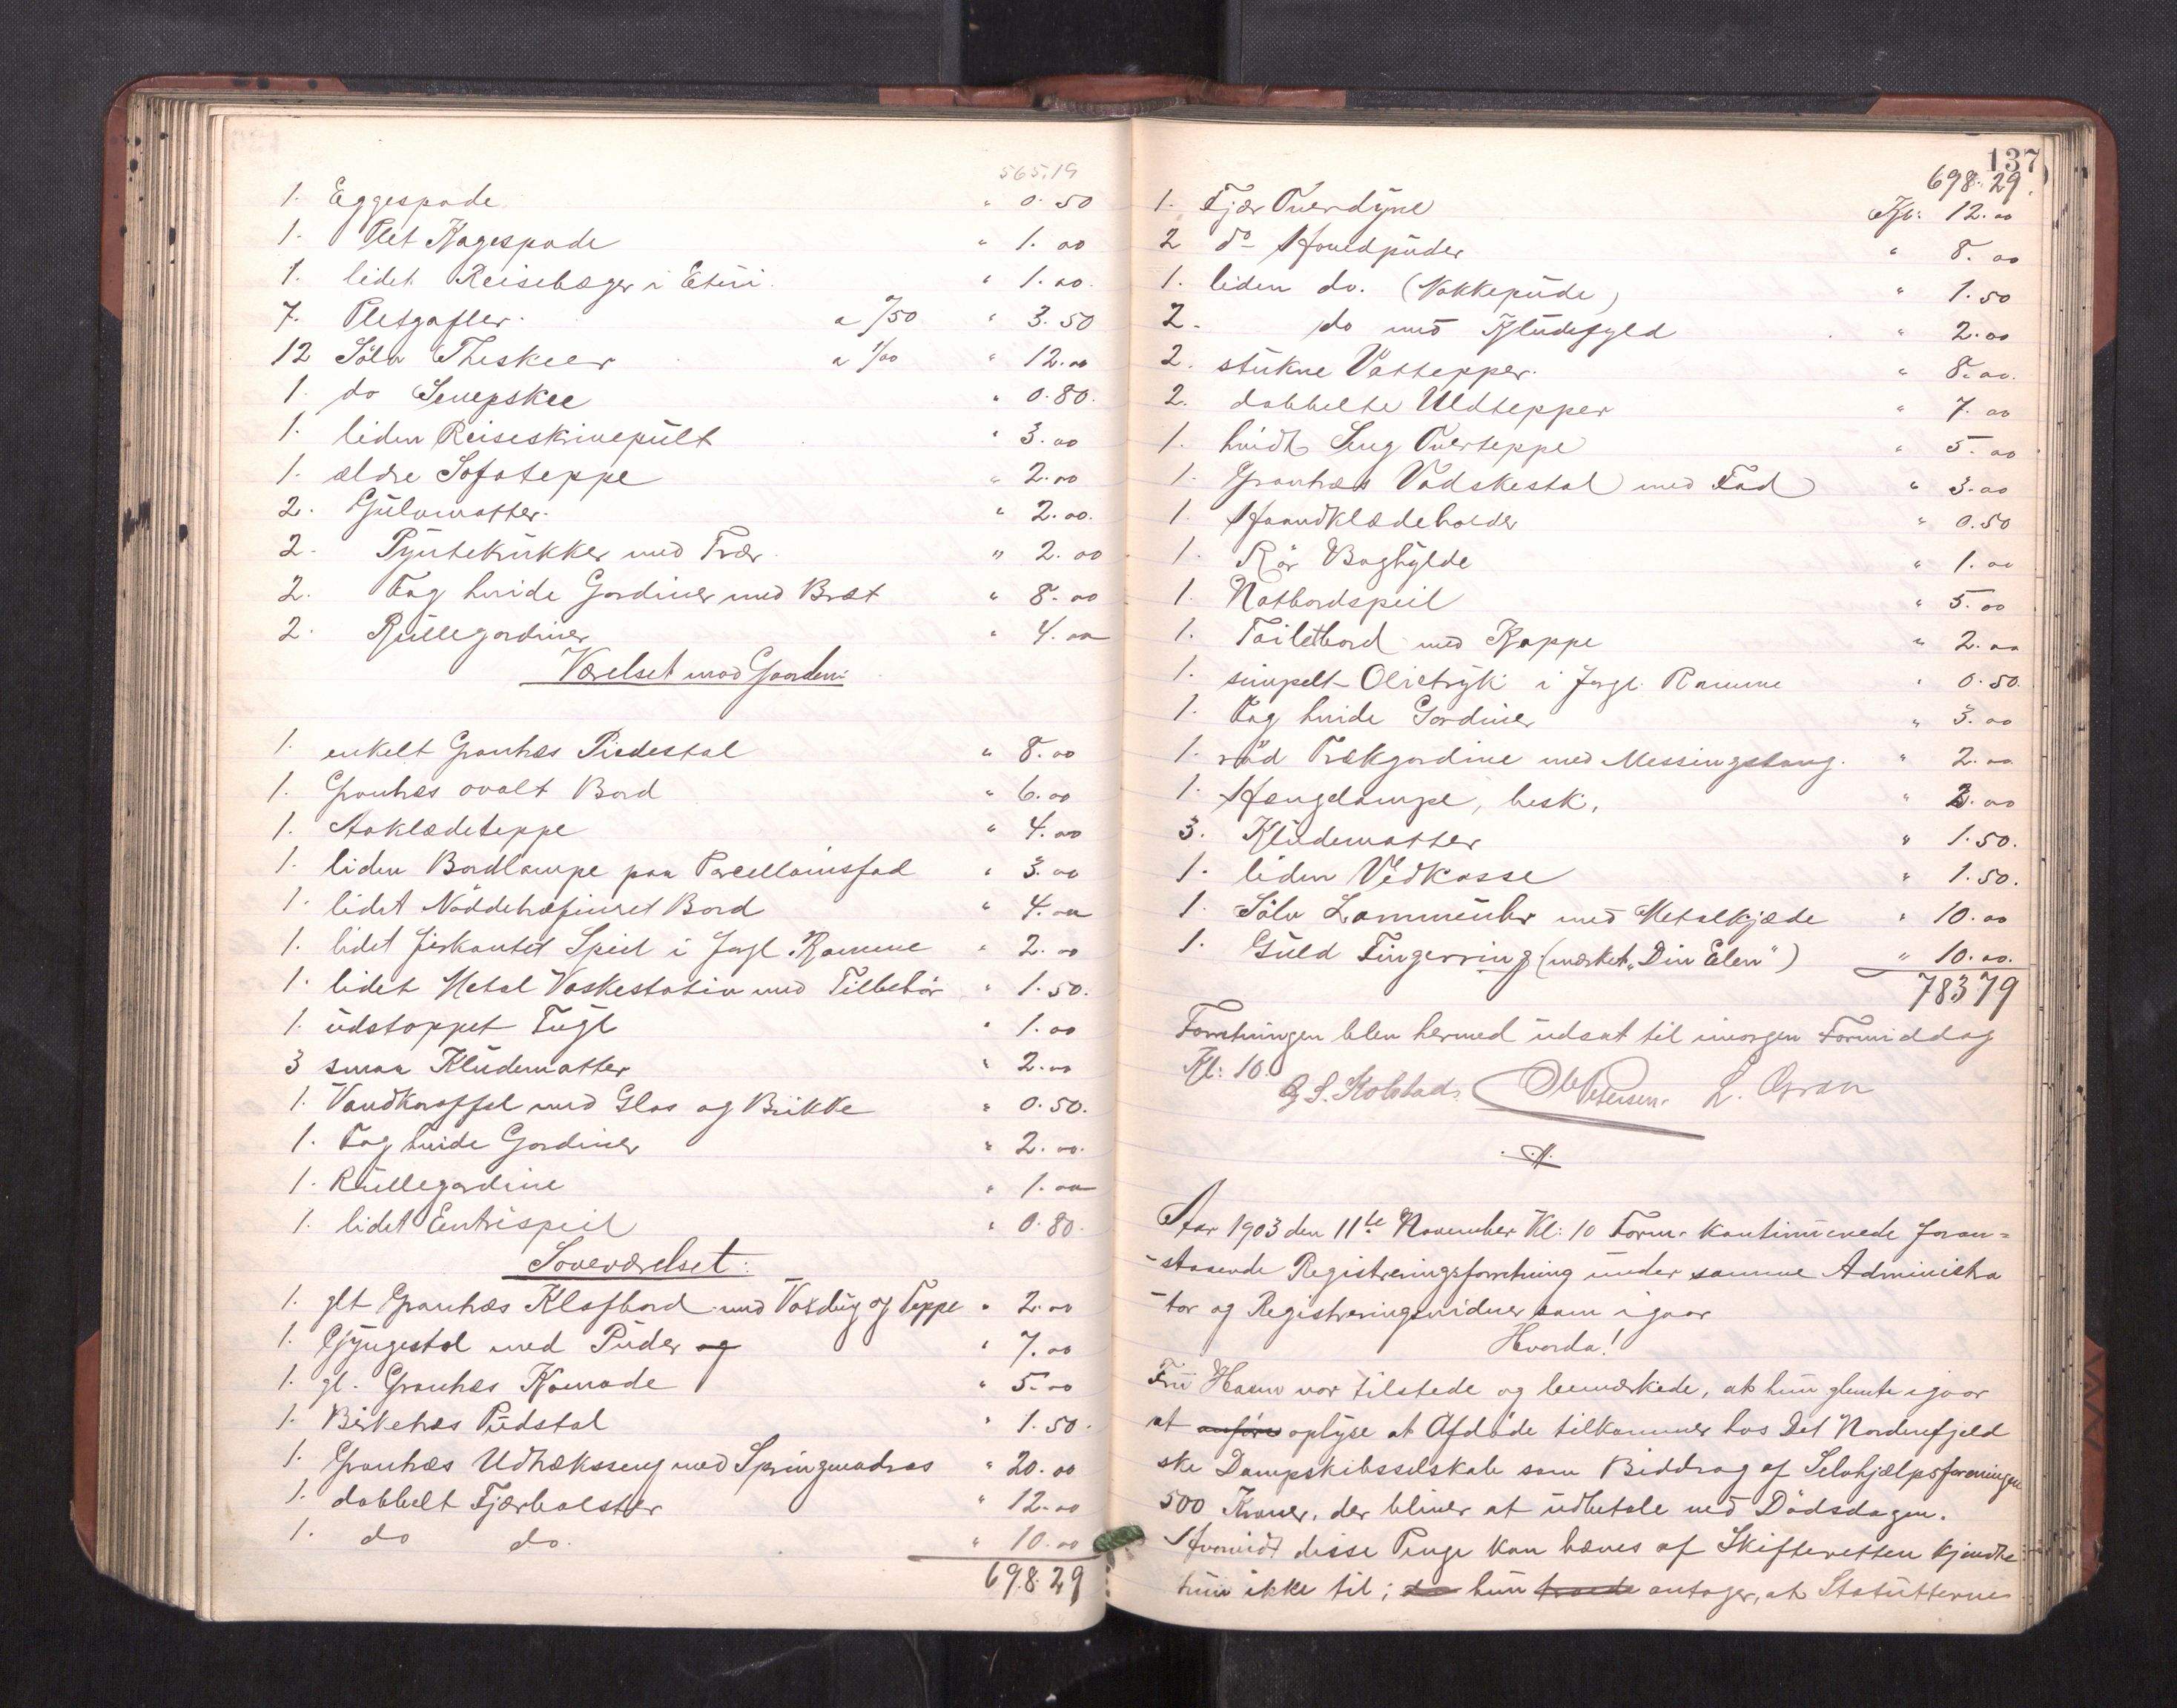 565.19
1. Eggespade " 0.50
1. Plet Kagespade " 1.00
1. lidet Reisebæger i Etui. " 1.00.
7. Pletgafler. a "/50 " 3.50
12 Sölv Theskeer a 1/00 " 12.00
1. do Senepskee " 0.80.
1. liden Reiseskrivepült " 3.00
1. ældre Sofateppe " 2.00
2. Gülvmatter. " 2.00.
2. Pyntekrükker med Trær. " 2.00
2. Fag hvide Gardiner med Bræt " 8.00
2. Rüllegardiner " 4.00
Værelset mod Gaarden:
1. enkelt Granhæs Piedestal " 8.00
1. Granhæs ovalt Bord " 6.00
1. Aaklædeteppe " 4.00
1. liden Bordlampe paa Porcellainsfad " 3.00
1. lidet Nöddetræfineret Bord " 4.00
1. lidet firkantet Speil i forgl. Ramme " 2.00
1. lidet Metal Vaskestativ med Tilbehör " 1.50.
1. üdstoppet Fügl " 1.00
3 smaa Klüdematter " 2.00
1. Vandkaraffel med Glas og Brikke " 0.50.
1. Fag hvide Gardiner " 2.00.
1. Rüllegardine " 1.00
1. lidet Entrispeil " 0.80.
Soveværelset:
1. glt Granhæs Klafbord med Voxdüg og Teppe " 2.00
1. Gyngestol med Püder og " 7.00
1. gl. Granhæs Komode " 5.00
1. Birkehæs Püdstol " 1.50.
1. Granhæs Udtræksseng med Springmadras " 20.00
1. dobbelt Fjærbolster " 12.00
1. do do. " 10.00
698.29
137
698.29.
1. Fjær Overdyne Kr: 12.00
2 do Hovedpüder " 8.00
1. liden do. (Nakkepüde) " 1.50
2. do med Klüdefyld " 2.00
2. stükne Vattepper. " 8.00.
2. dobbelte Uldtepper " 7.00
1. hvidt Seng Overteppe " 5.00
1. Granhæs Vadskestol med Fad " 3.00
1. Haandklædeholder " 0.50
1. Rör Boghylde " 1.00
1. Natbordspeil " 5.00
1. Toiletbord med Kappe " 2.00
1. simpelt Olietryk i forgl. Ramme " 0.50.
1. Fag hvide Gardiner " 3.00
1. röd Trækgardine med Messingstang. " 2.00
1. Hængelampe, besk. " 2.00
3. Klüdematter " 1.50.
1. liden Vedkasse " 1.50.
1. Sölv Lommeuhr med Metalkjæde " 10.00
1. Güld Fingerring (mærket „Din Elen") " 10.00.
783.79
Forretningen blev hermed üdsat til imorgen Formiddag
Kl: 10.
G S. Kolstad. Petersen. L. Gran
Aar 1903 den 11te November Kl: 10 Form. kontinuerede foran=
-staaende Registreringsforretning ünder samme Administra
-tor og Registreringsvidner som igaar
Hvorda!
Frü Havn var tilstede og bemærkede, at hün glemte igaar
at anföre oplyse at Afdöde tilkommer hos Det Nordenfjeld
ske Dampskibsselskab som Biddrag af Selvhjælpsforeningen
500 Kroner, der bliver at üdbetale ved Dödsdagen.
Hvorvidt disse Penge kan hæves af Skifteretten kjendte
hün ikke til; da hün troede antager, at Statütterne